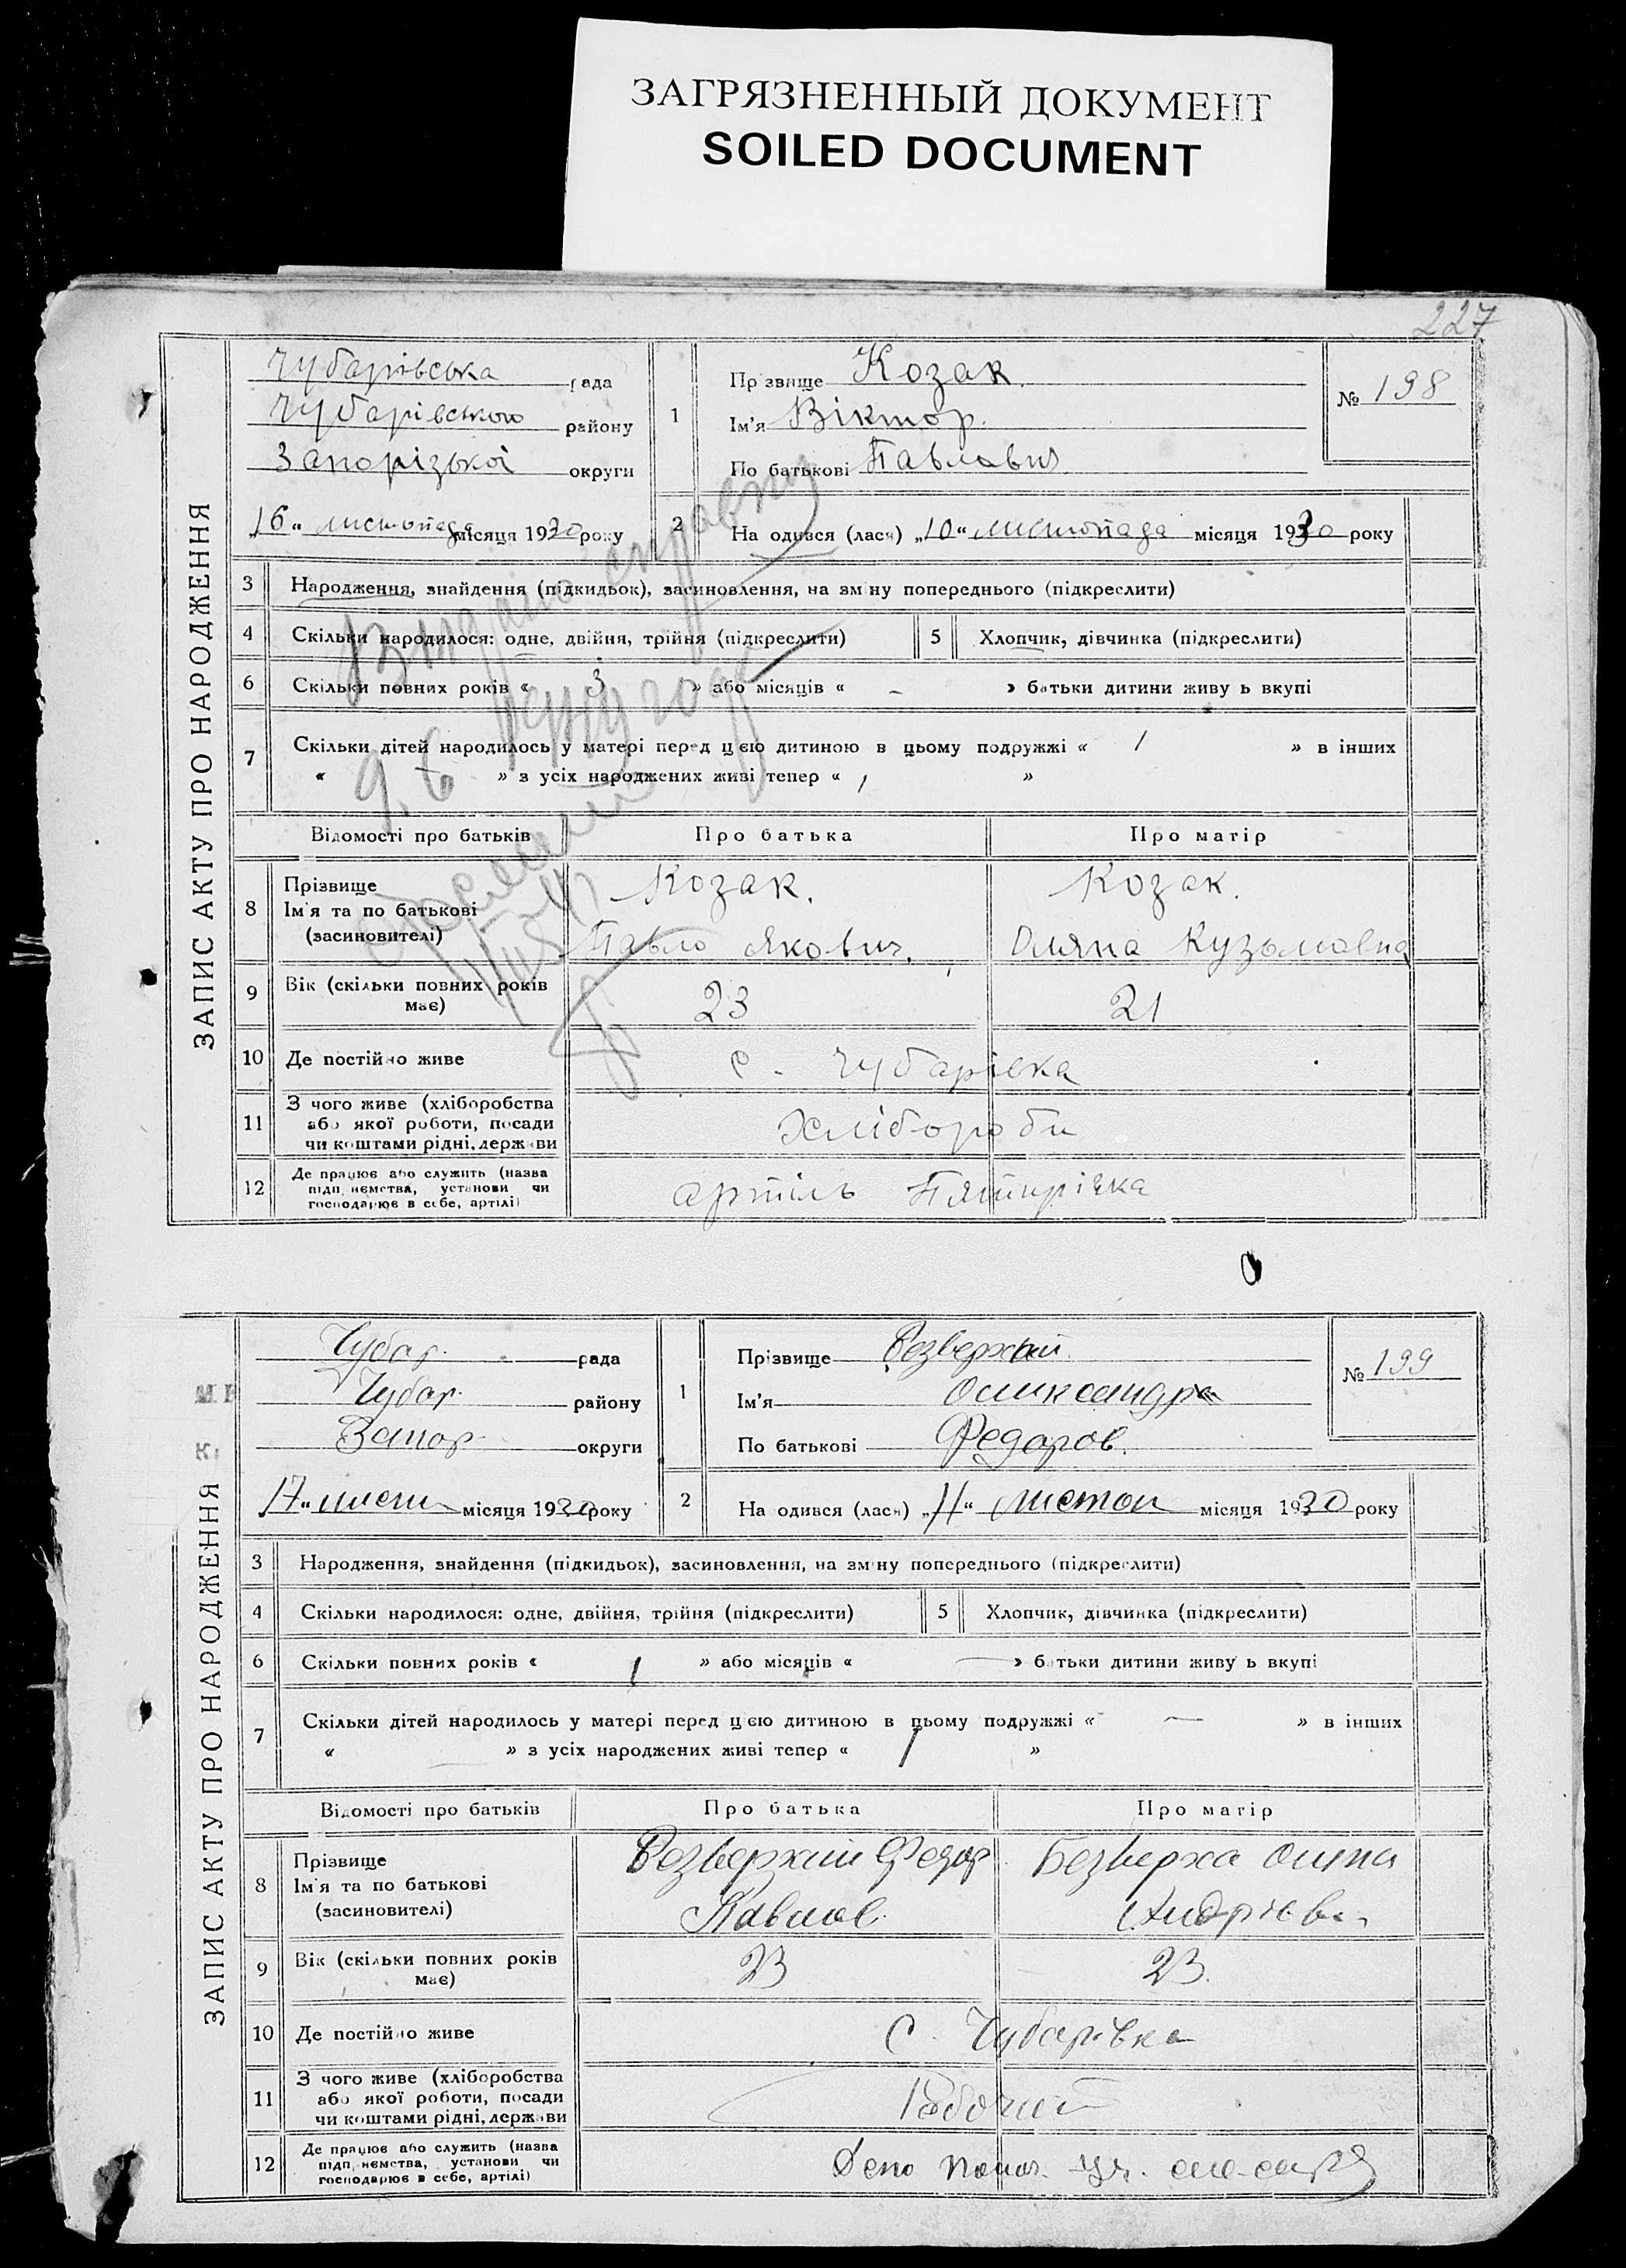 ЗАГРЯЗНЕННЫЙ ДОКУМЕНТ
SOILED DOCUMENT
227
ЗАПИС АКТУ ПРО НАРОДЖЕННЯ
Чубарівська рада
Чубарівського району
Запорізької округи
„16“ листопада місяця 1930 року
1
Прізвище Козак.
Ім'я Віктор.
По батькові Павлович
№ 198
2 Народився (лася) „10“ листопада місяця 1930 року
3 Народження, знайдення (підкидьок), засиновлення, на зміну попереднього (підкреслити)
4 Скільки народилося: одне, двійня, трійня (підкреслити) 5 Хлопчик, дівчинка (підкреслити)
6 Скільки повних років « 3 » або місяців « - » батьки дитини живуть вкупі
7 Скільки дітей народилось у матері перед цією дитиною в цьому подружжі « 1 » в інших
« » з усіх народжених живі тепер « 1 »
Відомості про батьків Про батька Про матір
8 Прізвище
Ім'я та по батькові
(засиновителі)
Козак.
Павло Якович.
Козак.
Оляна Кузьмовна
9 Вік (скільки повних років має) 23 21
10 Де постійно живе с. Чубарівка
11 З чого живе (хліборобства
або якої роботи, посади
чи коштами рідні, держави
Хлібороби
12 Де працює або служить (назва
підприємства, установи чи
господарює в себе, артілі)
артіль
ЗАПИС АКТУ ПРО НАРОДЖЕННЯ
Чубар. рада
Чубар. району
Запор. округи
„17“ листоп місяця 1930 року
1
Прізвище Безверхий
Ім'я Олександра
По батькові Федоров.
№ 199
2 Народився (лася) „11“ листоп місяця 1930 року
3 Народження, знайдення (підкидьок), засиновлення, на зміну попереднього (підкреслити)
4 Скільки народилося: одне, двійня, трійня (підкреслити) 5 Хлопчик, дівчинка (підкреслити)
6 Скільки повних років « 1 » або місяців « — » батьки дитини живуть вкупі
7 Скільки дітей народилось у матері перед цією дитиною в цьому подружжі « — » в інших
« — » з усіх народжених живі тепер « 1 »
Відомості про батьків Про батька Про матір
8 Прізвище
Ім'я та по батькові
(засиновителі)
Безверхий Федор
Павлов.
Безверха Олина
Андрієв.
9 Вік (скільки повних років має) 23 23.
10 Де постійно живе С. Чубарівка
11 З чого живе (хліборобства
або якої роботи, посади
чи коштами рідні, держави
Робочий
12 Де працює або служить (назва
підприємства, установи чи
господарює в себе, артілі)
Депо